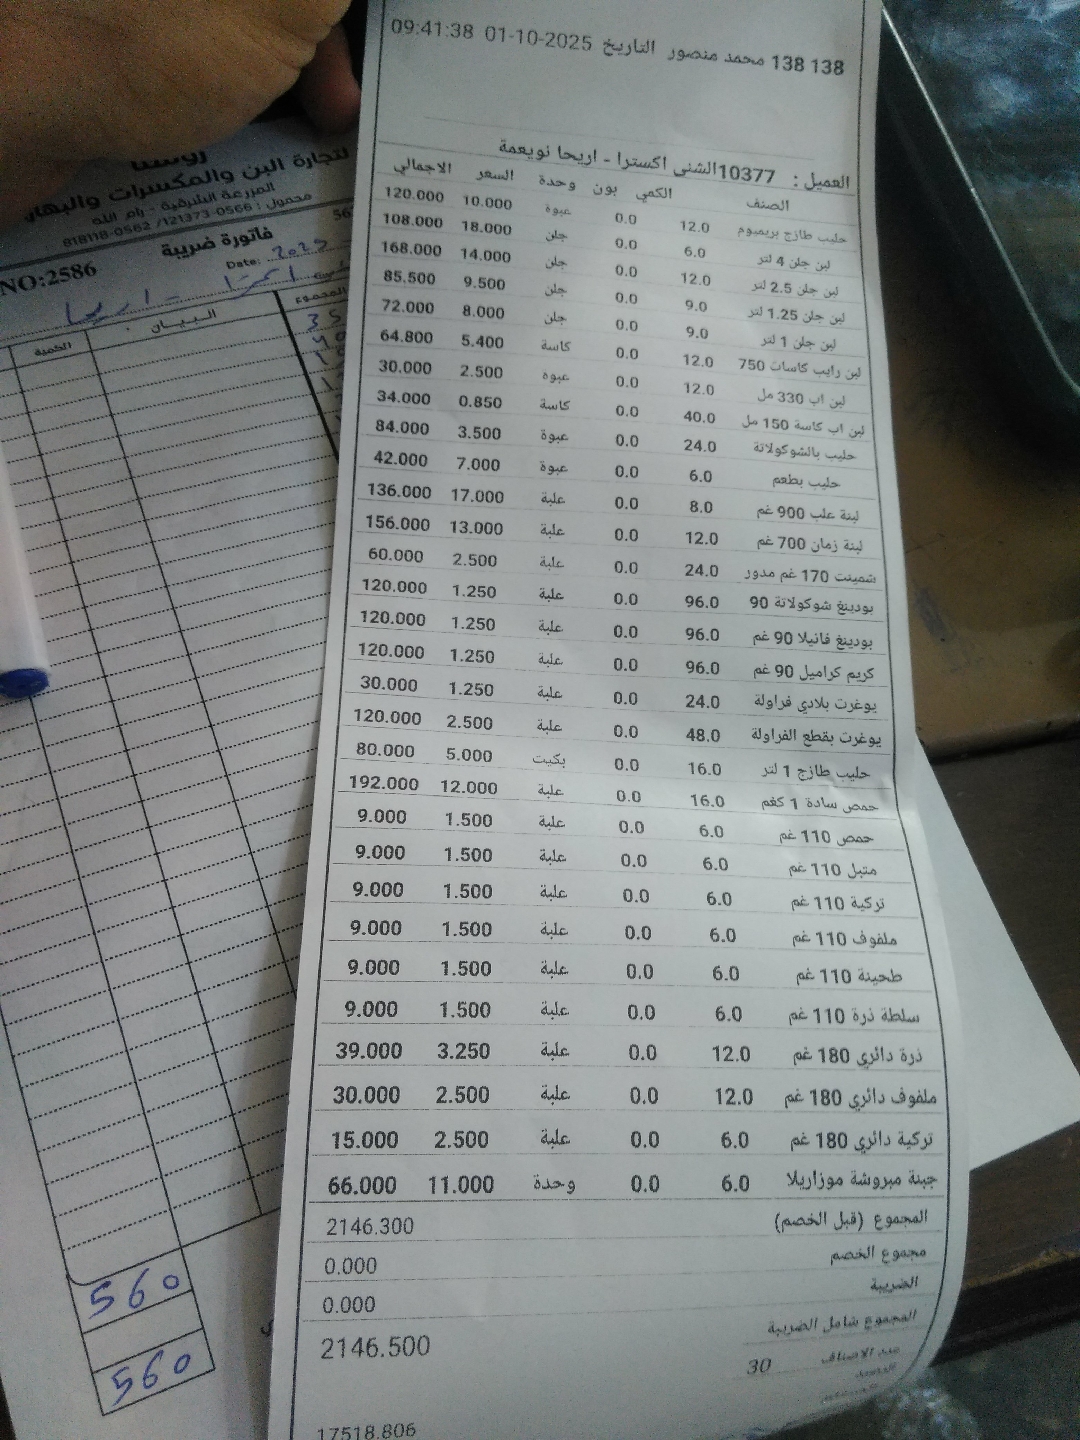 138 138 محمد منصور التاريخ 01-10-2025 09:41:38
العميل : 10377الشني اكسترا - اريحا نويعمة
الصنف الكمي بون وحدة السعر الاجمالي
حليب طازج بريميوم 12.0 0.0 عبوة 10.000 120.000
لبن جلن 4 لتر 6.0 0.0 جلن 18.000 108.000
لبن جلن 2.5 لتر 12.0 0.0 جلن 14.000 168.000
لبن جلن 1.25 لتر 9.0 0.0 جلن 9.500 85.500
لبن جلن 1 لتر 9.0 0.0 جلن 8.000 72.000
لبن رايب كاسات 750 12.0 0.0 كاسة 5.400 64.800
لبن اب 330 مل 12.0 0.0 عبوه 2.500 30.000
لبن اب كاسة 150 مل 40.0 0.0 كاسة 0.850 34.000
حليب بالشوكولاتة 24.0 0.0 عبوة 3.500 84.000
حليب بطعم 6.0 0.0 عبوة 7.000 42.000
لبنة علب 900 غم 8.0 0.0 علبة 17.000 136.000
لبنة زمان 700 غم 12.0 0.0 علبة 13.000 156.000
شمينت 170 غم مدور 24.0 0.0 علبة 2.500 60.000
بودينغ شوكولاتة 90 96.0 0.0 علبة 1.250 120.000
بودينغ فانيلا 90 غم 96.0 0.0 علبة 1.250 120.000
كريم كراميل 90 غم 96.0 0.0 علبة 1.250 120.000
يوغرت بلادي فراولة 24.0 0.0 علبة 1.250 30.000
يوغرت بقطع الفراولة 48.0 0.0 علبة 2.500 120.000
حليب طازج 1 لتر 16.0 0.0 بكيت 5.000 80.000
حمص سادة 1 كغم 16.0 0.0 علبة 12.000 192.000
حمص 110 غم 6.0 0.0 علبة 1.500 9.000
متبل 110 غم 6.0 0.0 علبة 1.500 9.000
تركية 110 غم 6.0 0.0 علبة 1.500 9.000
ملفوف 110 غم 6.0 0.0 علبة 1.500 9.000
طحينة 110 غم 6.0 0.0 علبة 1.500 9.000
سلطة ذرة 110 غم 6.0 0.0 علبة 1.500 9.000
ذرة دائري 180 غم 12.0 0.0 علبة 3.250 39.000
ملفوف دائري 180 غم 12.0 0.0 علبة 2.500 30.000
تركية دائري 180 غم 6.0 0.0 علبة 2.500 15.000
جبنة مبروشة موزاريلا 6.0 0.0 وحدة 11.000 66.000
المجموع (قبل الخصم) 2146.300
مجموع الخصم 0.000
الضريبة 0.000
المجموع شامل الضريبة 2146.500
عدد الاصناف 30
17518.806
لتجارة البن والمكسرات والبهار
المزرعة الشرقية - رام الله
محمول : 0566-121373/ 0562-818118
فاتورة ضريبية
NO:2586
Date: 2025
اريحا
المجموع البيان الكمية
35
560
560